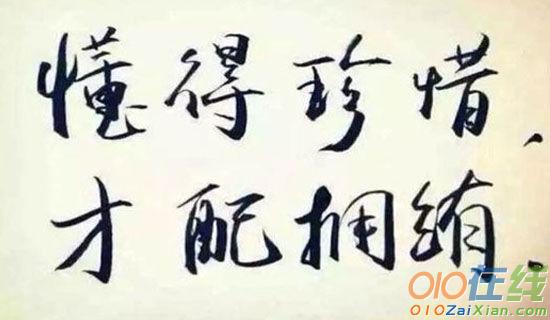 懂得珍惜，
才配拥有.
010在线
010ZaiXian.com